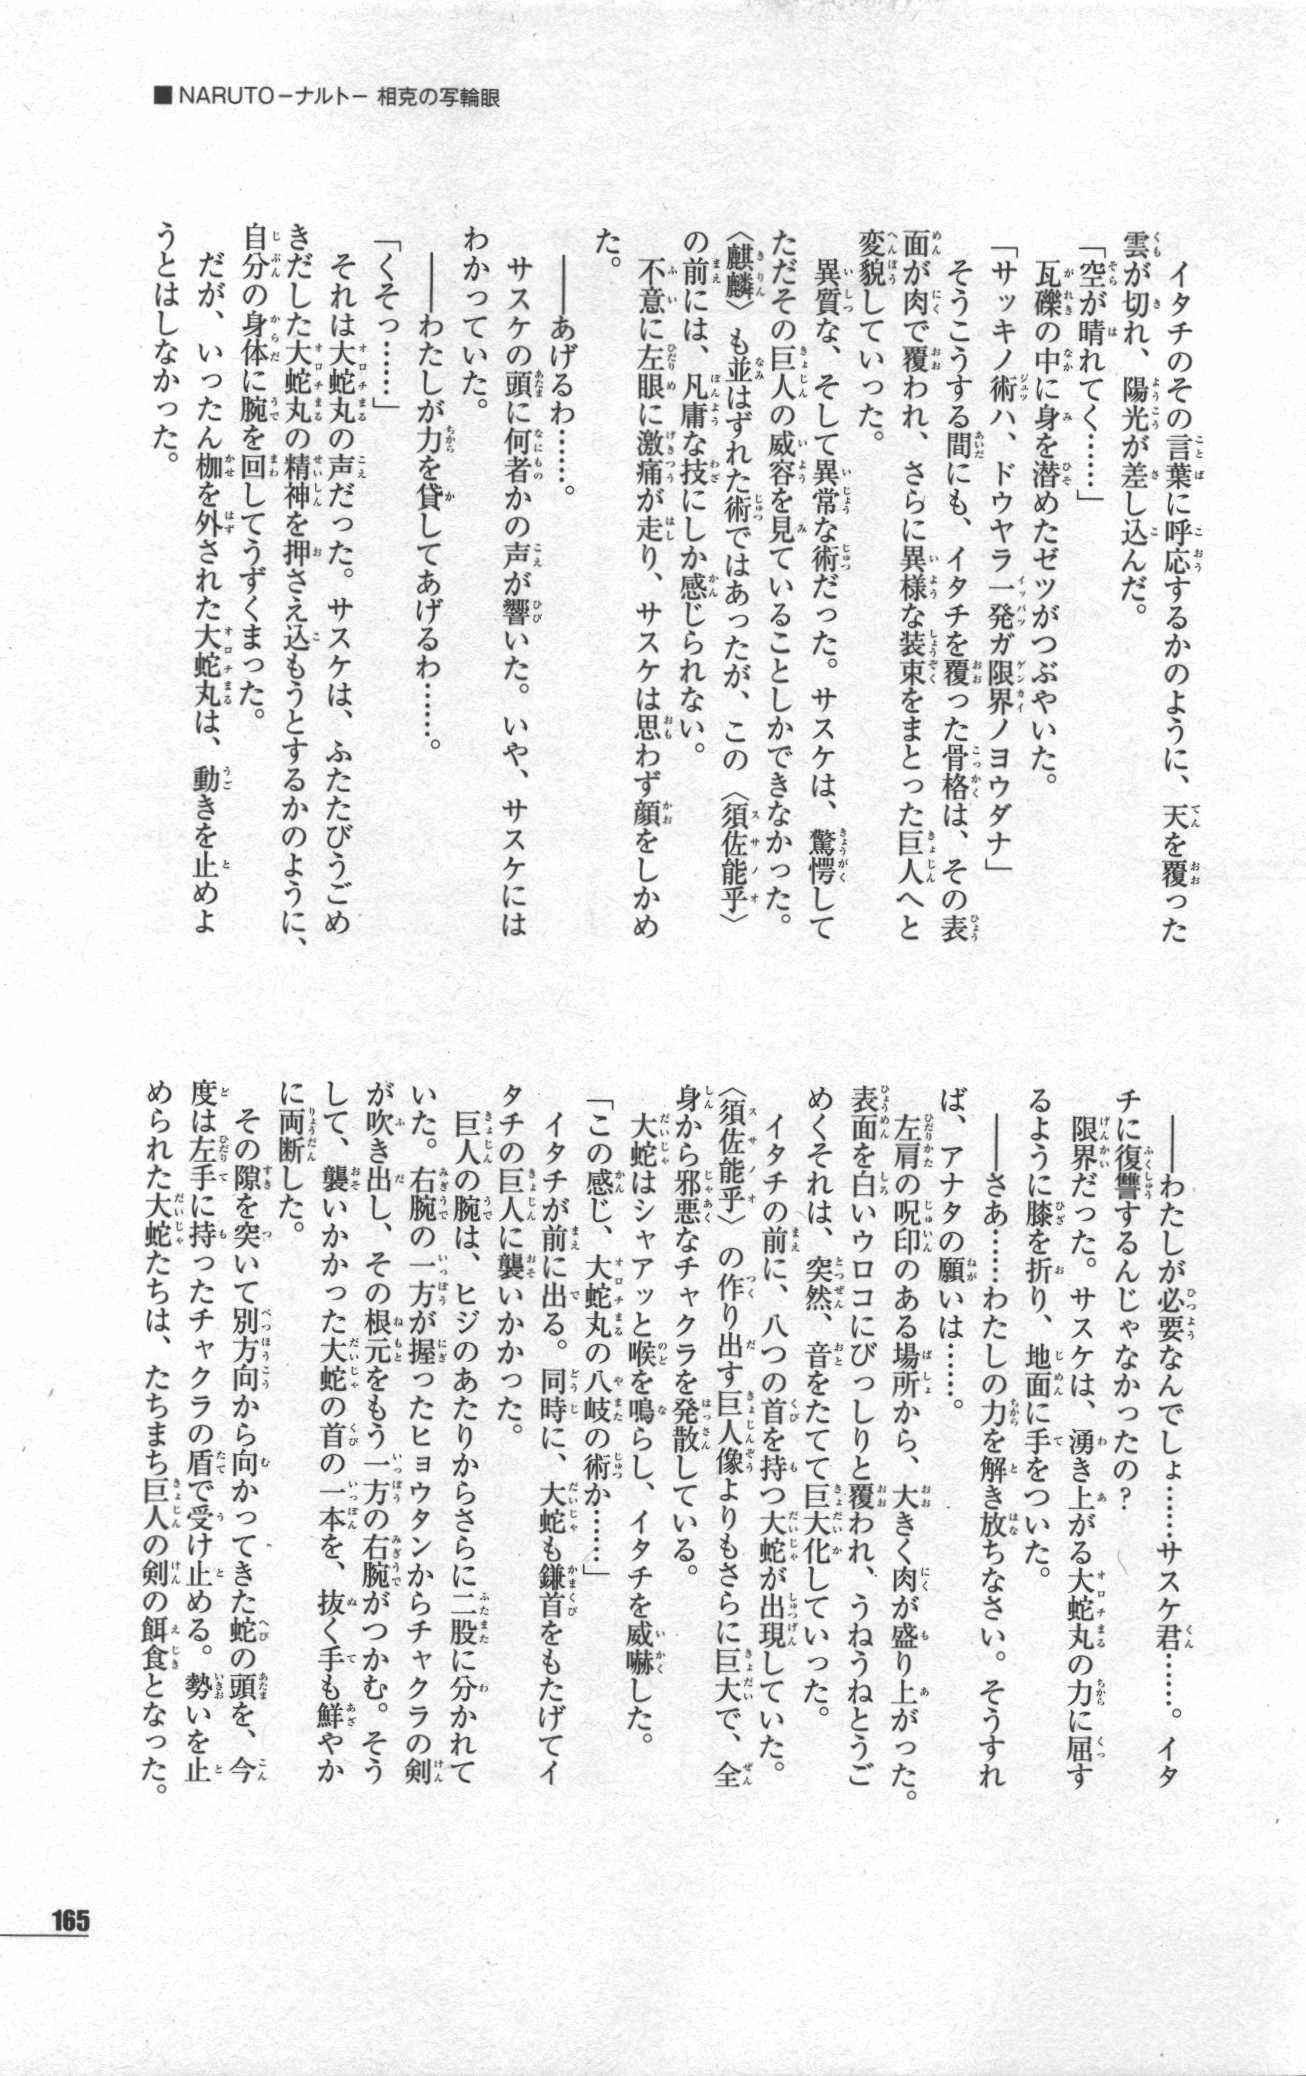 ■NARUTO－ナルト－ 相克の写輪眼
　イタチのその言葉に呼応するかのように、天を覆った
雲が切れ、陽光が差し込んだ。
「空が晴れてく……」
　瓦礫の中に身を潜めたゼツがつぶやいた。
「サッキノ術ハ、ドウヤラ一発ガ限界ノヨウダナ」
　そうこうする間にも、イタチを覆った骨格は、その表
面が肉で覆われ、さらに異様な装束をまとった巨人へと
変貌していった。
　異質な、そして異常な術だった。サスケは、驚愕して
ただその巨人の威容を見ていることしかできなかった。
〈麒麟〉も並はずれた術ではあったが、この〈須佐能乎〉
の前には、凡庸な技にしか感じられない。
　不意に左眼に激痛が走り、サスケは思わず顔をしかめ
た。
　――あげるわ……。
　サスケの頭に何者かの声が響いた。いや、サスケには
わかっていた。
　――わたしが力を貸してあげるわ……。
「くそっ……」
　それは大蛇丸の声だった。サスケは、ふたたびうごめ
きだした大蛇丸の精神を押さえ込もうとするかのように、
自分の身体に腕を回してうずくまった。
　だが、いったん枷を外された大蛇丸は、動きを止めよ
うとはしなかった。
　――わたしが必要なんでしょ……サスケ君……。イタ
チに復讐するんじゃなかったの？
　限界だった。サスケは、湧き上がる大蛇丸の力に屈す
るように膝を折り、地面に手をついた。
　――さあ……わたしの力を解き放ちなさい。そうすれ
ば、アナタの願いは……。
　左肩の呪印のある場所から、大きく肉が盛り上がった。
表面を白いウロコにびっしりと覆われ、うねうねとうご
めくそれは、突然、音をたてて巨大化していった。
　イタチの前に、八つの首を持つ大蛇が出現していた。
〈須佐能乎〉の作り出す巨人像よりもさらに巨大で、全
身から邪悪なチャクラを発散している。
　大蛇はシャアッと喉を鳴らし、イタチを威嚇した。
「この感じ、大蛇丸の八岐の術か……」
　イタチが前に出る。同時に、大蛇も鎌首をもたげてイ
タチの巨人に襲いかかった。
　巨人の腕は、ヒジのあたりからさらに二股に分かれて
いた。右腕の一方が握ったヒョウタンからチャクラの剣
が吹き出し、その根元をもう一方の右腕がつかむ。そう
して、襲いかかった大蛇の首の一本を、抜く手も鮮やか
に両断した。
　その隙を突いて別方向から向かってきた蛇の頭を、今
度は左手に持ったチャクラの盾で受け止める。勢いを止
められた大蛇たちは、たちまち巨人の剣の餌食となった。
165